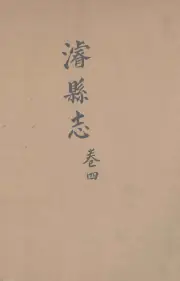 濬縣志
卷四